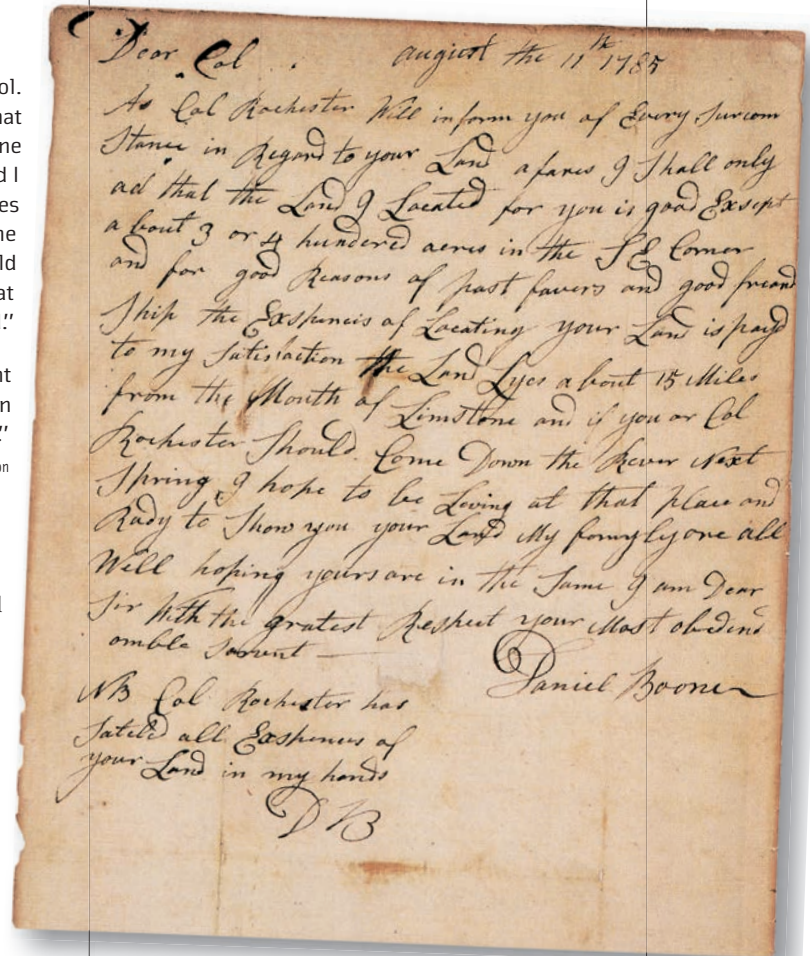 ol.
hat
ne
d I
es
he
ld
at
."
nt
n
."
on
d
Dear Col . august the 11th 1785
As Col Rochester Will inform you of Every Surcom
Stance in Regard to your Land afares I Shall only
ad that the Land I Located for you is good Exsept
a bout 3 or 4 hundered acres in the SE Corner
and for good Reasons of past favers and good freand
Ship the Exspencis of Locating your Land is payd
to my Satisfaction the Land Lyes about 15 Miles
from the Mouth of Limstone and if you or Col
Rochester Should Come Down the River Next
Spring I hope to be Loving at that place and
Rady to Show you your Land My famyly are all
Well hoping yours are in the Same I am Dear
Sir With the gratest Respect your Most obedent
omble Sarvent
Daniel Boone
NB Col Rochester has
Sateled all Exspences of
your Land in my hands
DB